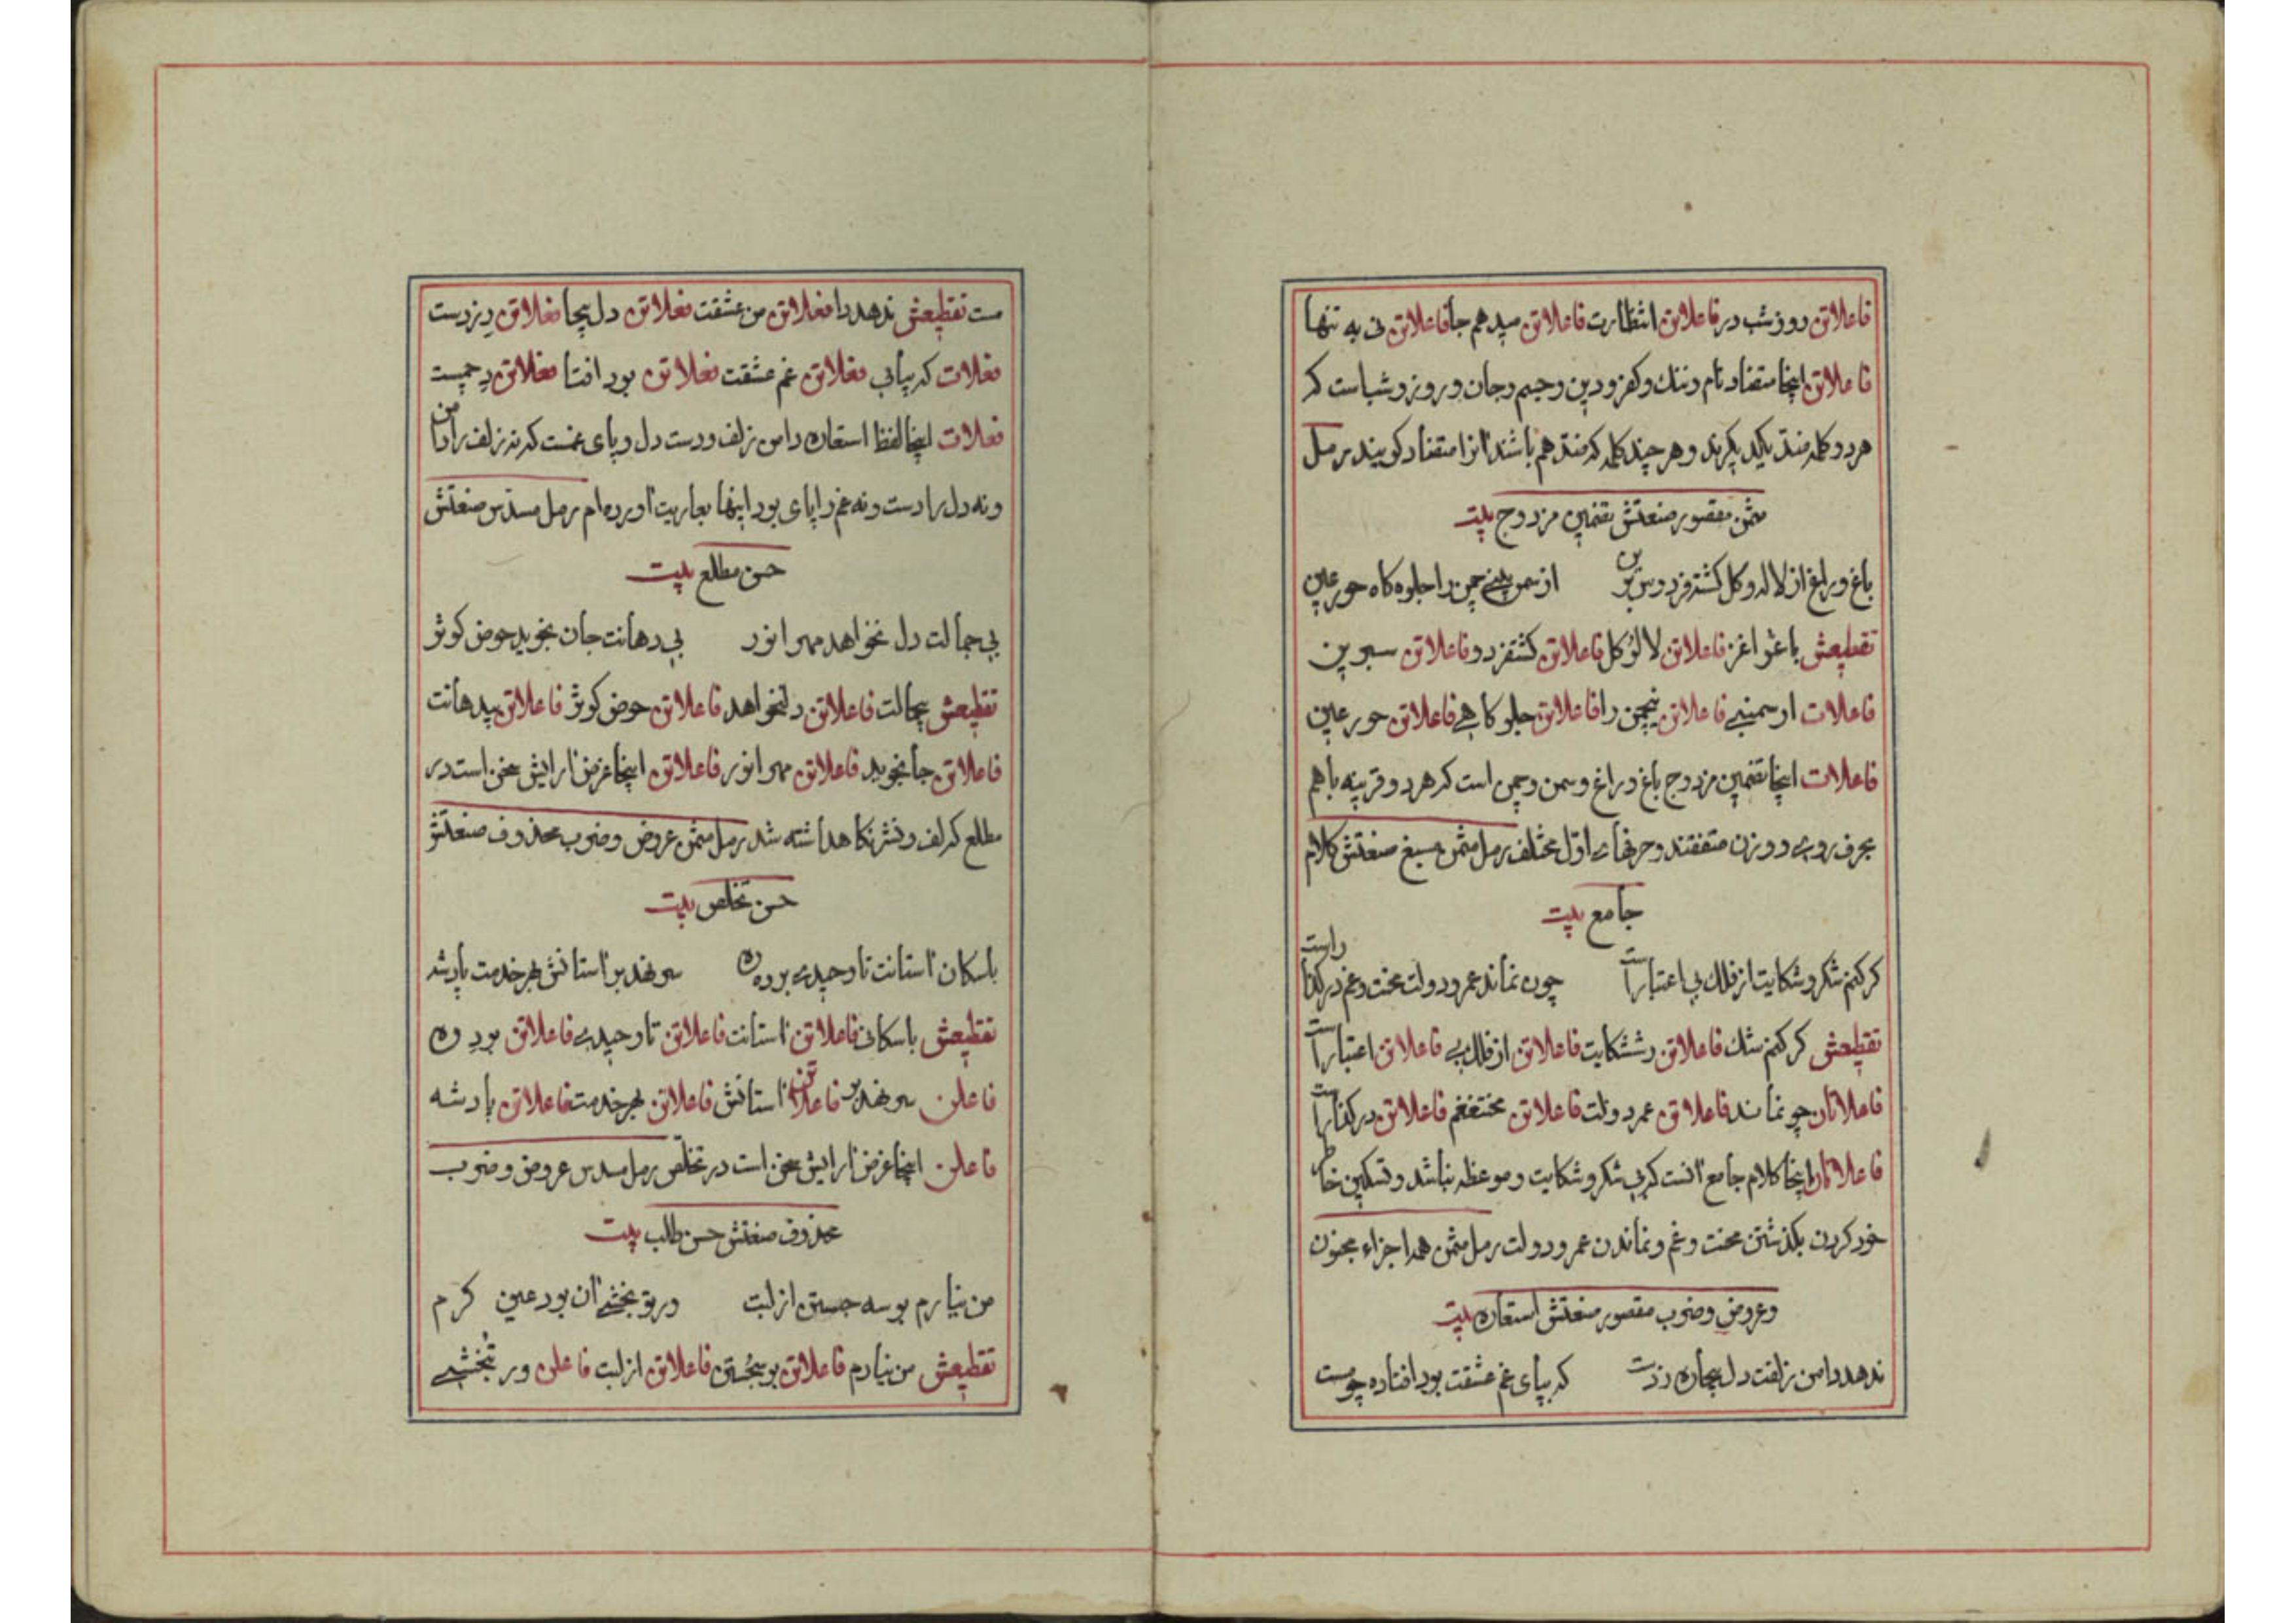 فاعلاتن روز شب در فاعلاتن انتظارت فاعلاتن میدهم جا فاعلاتن نی به تنها
فاعلاتن اینجا متضاد نام و ننك و کفر و دین و جسم و جان و روز و شب است که
هر دو کلمه ضد یکدیکرند و هر چند کلمه که ضد هم باشند انرا متضاد کویند رمل
مثمن مقصور صنعتش تضمین مزدوج بیت
باغ و راغ از لاله و کل کشته فردوس برین از سمن بینی چمن را جلوه کاه حور عین
تقطیعش باغو راغز فاعلاتن لالؤ کل فاعلاتن کشتفردو فاعلاتن سبرین
فاعلات از سمنبی فاعلاتن نیچمن را فاعلاتن جلو کاهی فاعلاتن حور عین
فاعلات اینجا تضمین مزدوج باغ و راغ و سمن و چمن است که هر دو قرینه باهم
بحرف روی و وزن متفقند و حرفهای اول مختلف رمل مثمن مسبغ صنعتش کلام
جامع بیت
کر کنم شکر و شکایت از فلك بی اعتبار است چون نماند عمر و دولت محنت و غم در کذار است
تقطیعش کر کنم شك فاعلاتن رششکایت فاعلاتن از فلك بی فاعلاتن اعتبار است
فاعلاتان چو نماند فاعلاتن عمر دولت فاعلاتن محنتغم فاعلاتن در کذار است
فاعلاتان اینجا کلام جامع انست که بی شکر و شکایت و موعظه نباشد و تسکین خاطر
خود کردن بکذشتن محنت و غم و نماندن عمر و دولت رمل مثمن همه اجزاء مخبون
و عروض و ضرب مقصور صنعتش استعاره بیت
ندهد دامن زلفت دل بیچاره ز دست که بپای غم عشقت بود افتاده چو مست
ست تقطیعش ندهد دا فعلاتن من عشقت فعلاتن دل بیچا فعلاتن رزدست
فعلات که بپای فعلاتن غم عشقت فعلاتن بود افتا فعلاتن دچمست
فعلات اینجا لفظ استعاره دامن زلف و دست دل و پای غمست که نه زلف را دامن
و نه دل را دست و نه غم را پای بود اینها بعاریت اورده ام رمل مسدس صنعتش
حسن مطلع بیت
بی جمالت دل نخواهد مهر انور بی دهانت جان نجوید حوض کوثر
تقطیعش بیجمالت فاعلاتن دلنخواهد فاعلاتن حوض کوثر فاعلاتن بیدهانت
فاعلاتن جانجوید فاعلاتن مهر انور فاعلاتن اینجا غرض ارایش سخن است در
مطلع که لف و نشر نکاهداشته شد رمل مثمن عروض و ضرب محذوف صنعتش
حسن تخلص بیت
باسکان استانت تا وحیدی برد ره سر نهد بر استانش بهر خدمت پادشه
تقطیعش باسکانی فاعلاتن استانت فاعلاتن تا وحیدی فاعلاتن بود ره
فاعلن سر نهد بر فاعلاتن استانش فاعلاتن بهر خدمت فاعلاتن پادشه
فاعلن اینجا غرض ارایش سخن است در تخلص رمل مسدس عروض و ضرب
محذوف صنعتش حسن طلب بیت
من نیارم بوسه جستن از لبت ور تو بخشی آن بود عین کرم
تقطیعش من نیارم فاعلاتن بوسجستن فاعلاتن از لبت فاعلن ور تبخشی